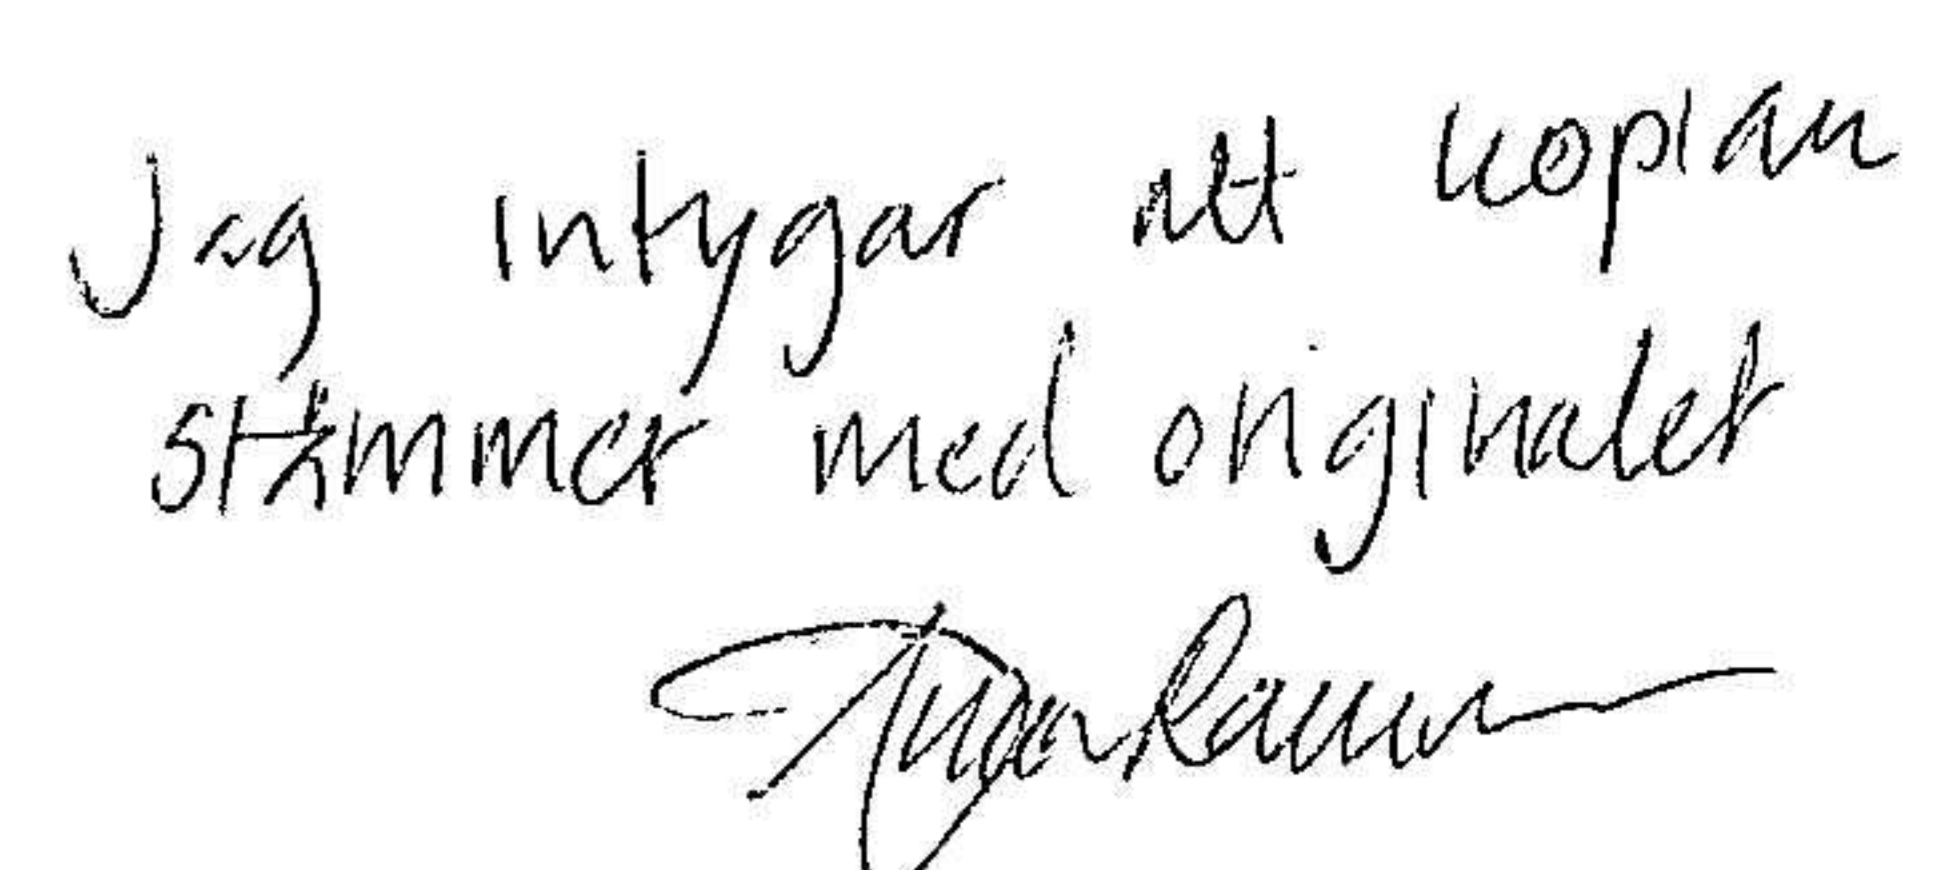 Jag intygar att kopian
stämmer med originalet